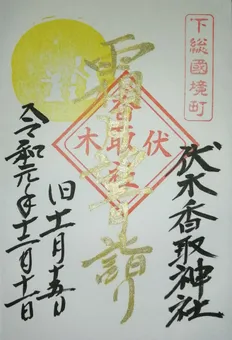 下総國境町
伏木香取神社
伏木
香取社
詣り
旧十一月十五日
令和元年十二月十一日